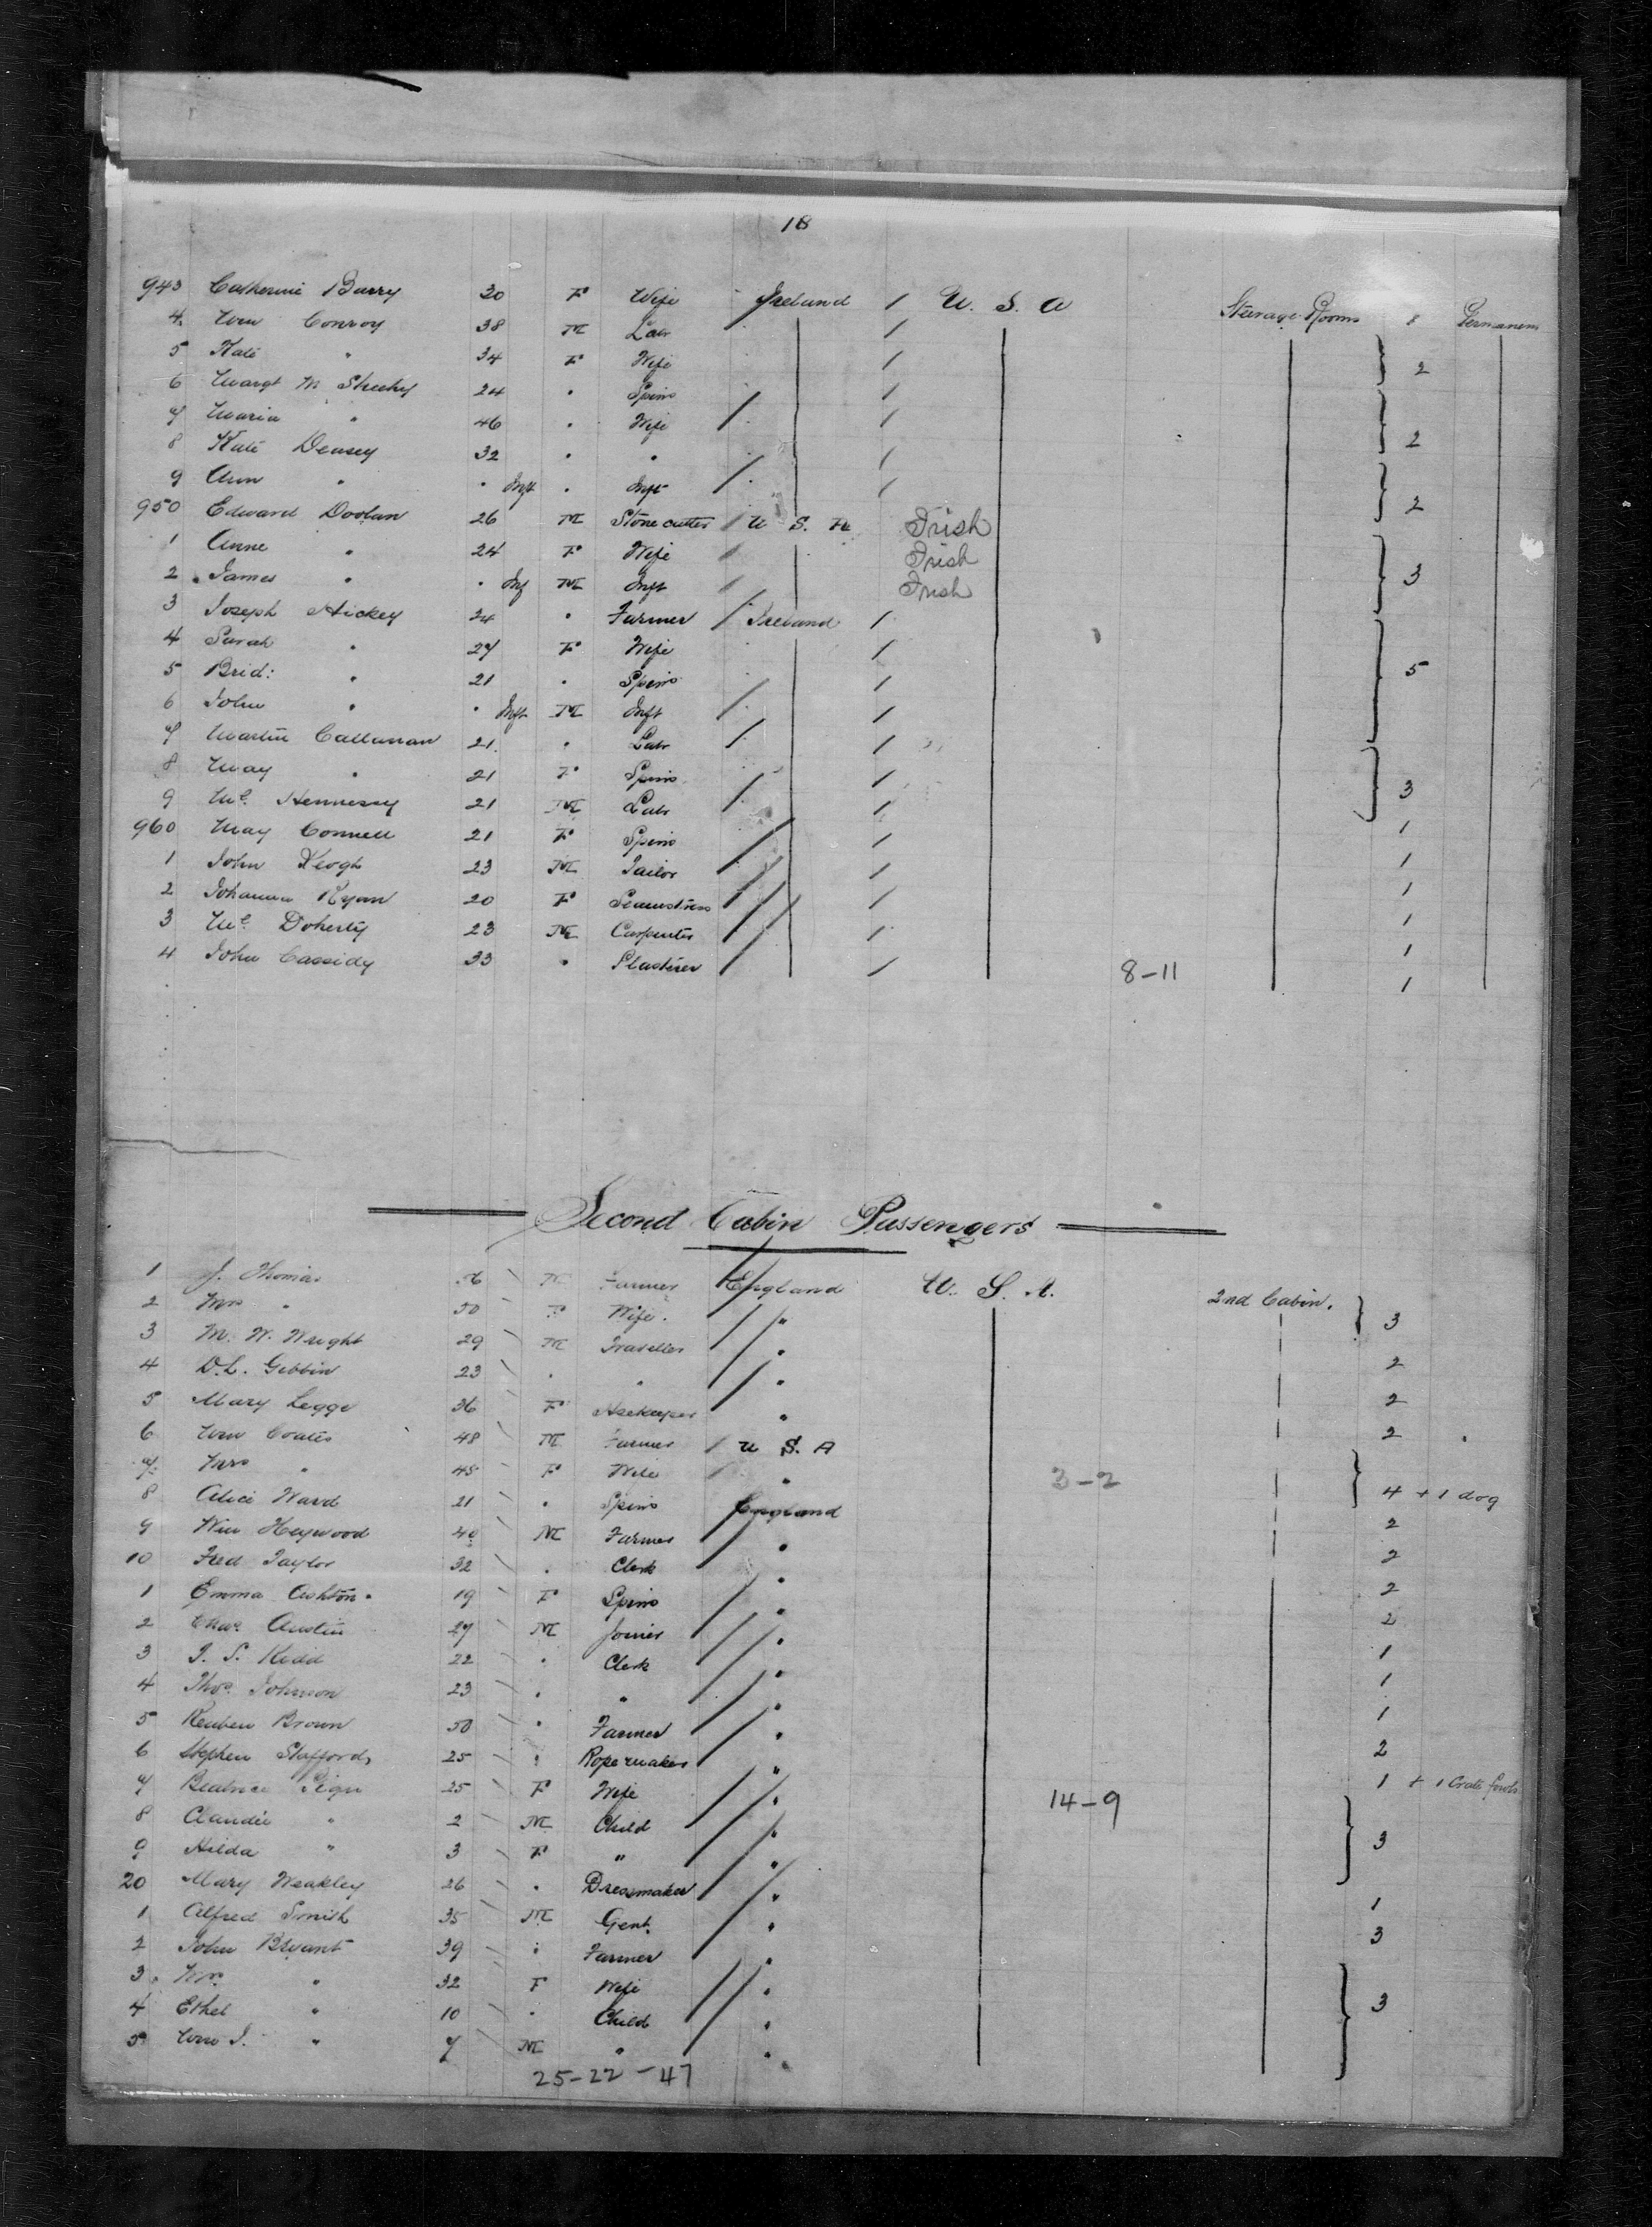 18
943 Catherine Barry 30 F Wife Ireland / U. S. A Steerage Rooms Permanent
4 Wm Conroy 38 M Labr / 2
5 Kate " 34 F Wife /
6 Margt M Sheehy 24 " Spins /
7 Maria " 46 " Wife / 2
8 Kate Deasey 32 " " /
9 Ann " " Inft " Inft / 2
950 Edward Doolan 26 M Stone cutter U S. A Irish
1 Anne " 24 F Wife Irish 3
2 James " " Inf M Inft Irish
3 Joseph Hickey 24 " Farmer Ireland /
4 Sarah " 27 F Wife / 5
5 Brid: " 21 " Spins /
6 John " " Inft M Inft /
7 Martin Callanan 21 " Labr /
8 May " 21 F Spins / 3
9 Ml. Hennessy 21 M Labr /
960 May Connell 21 F Spins / 1
1 John Keogh 23 M Tailor / 1
2 Johanna Ryan 20 F Seamstress / 1
3 Ml. Doherty 23 M Carpenter / 1
4 John Cassidy 33 " Plasterer / 8-11 1
1
Second Cabin Passengers
1 J. Thomas M Farmer England U. S. A. 2nd Cabin.
2 Mrs " 50 F Wife. " 3
3 M. W. Wright 29 M Traveller " 2
4 D.L. Gibbin 23 " " " 2
5 Mary Legge 36 F Hsekeeper " 2
6 Wm Coates 48 M Farmer U S. A
7 Mrs " 45 F Wife " 3-2 4 + 1 dog
8 Alice Ward 21 " Spins England 2
9 Wm Heywood 40 M Farmer " 2
10 Fred Taylor 32 " Clerk " 2
1 Emma Ashton 19 F Spins " 2
2 Chas. Austin 27 M Joiner " 1
3 J. S. Kidd 22 " Clerk " 1
4 Thos. Johnson 23 " " " 1
5 Reuben Brown 50 " Farmer " 2
6 Stephen Stafford 25 " Ropemaker " 1 + 1 Crate fowls
7 Beatrice 25 F Wife " 14-9
8 Claudie " 2 M Child " 3
9 Hilda " 3 F " "
20 Mary Weakley 26 " Dressmaker " 1
1 Alfred Smith 35 M Gent. " 3
2 John Bryant 39 " Farmer "
3 Mrs. " 32 F Wife " 3
4 Ethel " 10 " Child "
5 Wm J. " 7 M " "
25-22-47